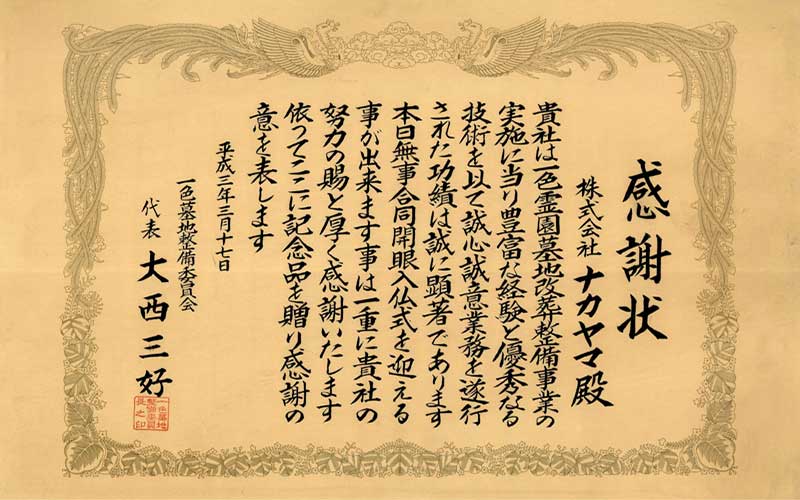 感謝状
株式会社 ナカヤマ殿
貴社は一色霊園墓地改葬整備事業の
実施に当り豊富な経験と優秀なる
技術を以て誠心誠意業務を遂行
された功績は誠に顕著であります
本日無事合同開眼入仏式を迎える
事が出来ます事は一重に貴社の
努力の賜と厚く感謝いたします
依ってここに記念品を贈り感謝の
意を表します
平成三年三月十七日
一色墓地整備委員会
代表 大西三好
一色墓地
整備委員
長之印